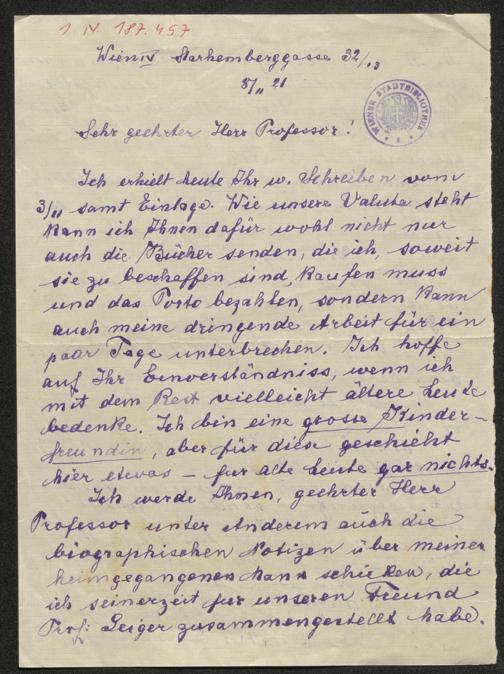 I N. 187.457
Wien IV Starhemberggasse 32/13
8/11 21
WIENER STADTBIBLIOTHEK
Sehr geehrter Herr Professor!
Ich erhielt heute Ihr w. Schreiben vom
3/11 samt Einlage. Wie unsere Valuta steht
kann ich Ihnen dafür wohl nicht nur
auch die Bücher senden, die ich, soweit
sie zu beschaffen sind, kaufen muss
und das Porto bezahlen, sondern kann
auch meine dringende Arbeit für ein
paar Tage unterbrechen. Ich hoffe
auf Ihr Einverständniss, wenn ich
mit dem Rest vielleicht ältere Leute
bedenke. Ich bin eine grosse Kinder-
freundin, aber für diese geschieht
hier etwas – für alte Leute gar nichts.
Ich werde Ihnen, geehrter Herr
Professor unter Anderem auch die
biographischen Notizen über meinen
heimgegangenen Mann schicken, die
ich seinerzeit für unseren Freund
Prof: Geiger zusammengestellt habe.